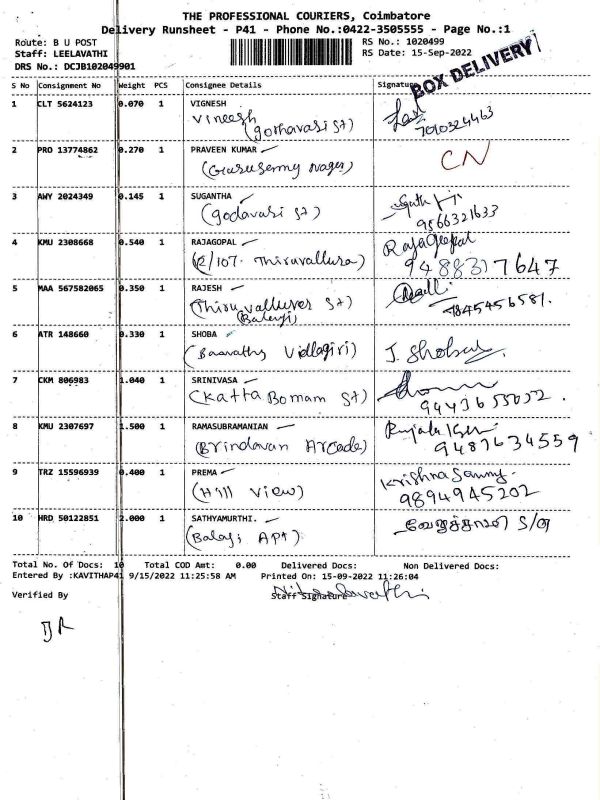 THE PROFESSIONAL COURIERS, Coimbatore
Delivery Runsheet - P41 - Phone No.:0422-3505555 - Page No.:1
Route: B U POST
RS No.: 1020499
Staff: LEELAVATHI
RS Date: 15-Sep-2022
DRS No.: DCJB102049901
BOX DELIVERY
S No Consignment No Weight PCS Consignee Details Signature
1 CLT 5624123 0.070 1 VIGNESH
Vineesh
7010324463
2 PRO 13774862 0.270 1 PRAVEEN KUMAR
CN
3 AWY 2024349 0.145 1 SUGANTHA
(godavari St)
9566321633
4 KMU 2308668 0.540 1 RAJAGOPAL
Rajagopal
9488317647
5 MAA 567582065 0.350 1 RAJESH
(Thiruvalluver St)
(Balaji)
6 ATR 148660 0.330 1 SHOBA
J. Shoba
7 CKM 806983 1.040 1 SRINIVASA
(Katta Bomam St)
8 KMU 2307697 1.500 1 RAMASUBRAMANIAN
(Brindavan Arcade)
9487634559
9 TRZ 15596939 0.400 1 PREMA
Krishna Samy.
(Hill View)
9894945202
10 HRD 50122851 2.000 1 SATHYAMURTHI.
(Balaji APt)
S/o
Total No. Of Docs: 10 Total COD Amt: 0.00 Delivered Docs: Non Delivered Docs:
Entered By :KAVITHAP41 9/15/2022 11:25:58 AM Printed On: 15-09-2022 11:26:04
Verified By
Staff Signature